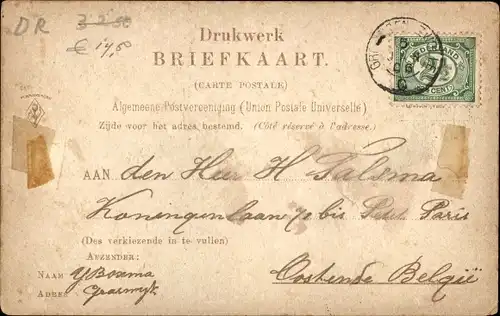 DR
3-2.50
€ 17,50
Drukwerk
BRIEFKAART.
(CARTE POSTALE)
Algemeene Postvereeniging (Union Postale Universelle)
Zijde voor het adres bestemd. (Côté réservé à l'adresse.)
NEDERLAND
2½
CENT
AAN den Heer H Palsma
Koningenlaan 70 bis Petit Paris
(Des verkiezende in te vullen)
AFZENDER:
Oostende België
NAAM YBosma
ADRES